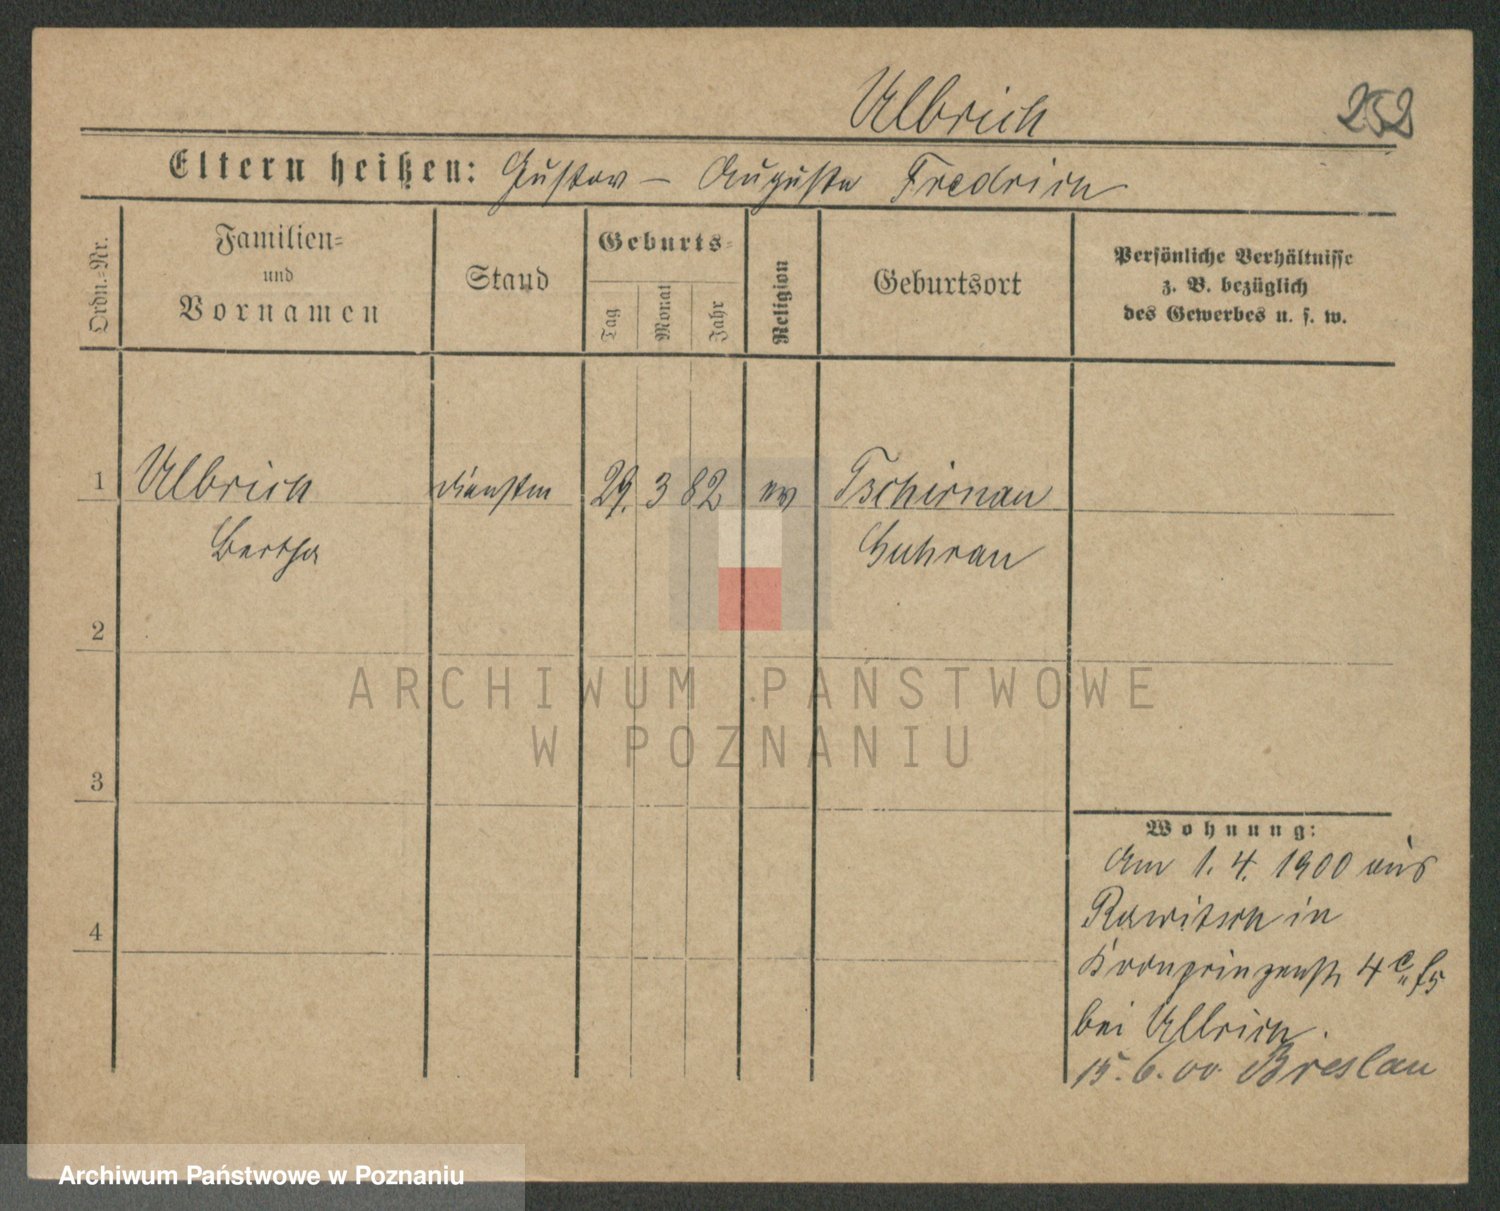 Ulbrich 252
Eltern heißen: Gustav – Auguste Fredrich
Ordn.-Nr.
Familien-
und
Vornamen
Stand
Geburts-
Tag
Monat
Jahr
Religion
Geburtsort
Persönliche Verhältnisse
z. B. bezüglich
des Gewerbes u. s. w.
1 Ulbrich 29. 3 82 ev Tschirnau
Bertha Guhrau
2
ARCHIWUM PAŃSTWOWE
W POZNANIU
3
Wohnung:
Am 1. 4. 1900 aus
4 Rawitsch in
Kronprinzenstr. 4
bei Ulbrich.
15. 6. 00 Breslau
Archiwum Państwowe w Poznaniu